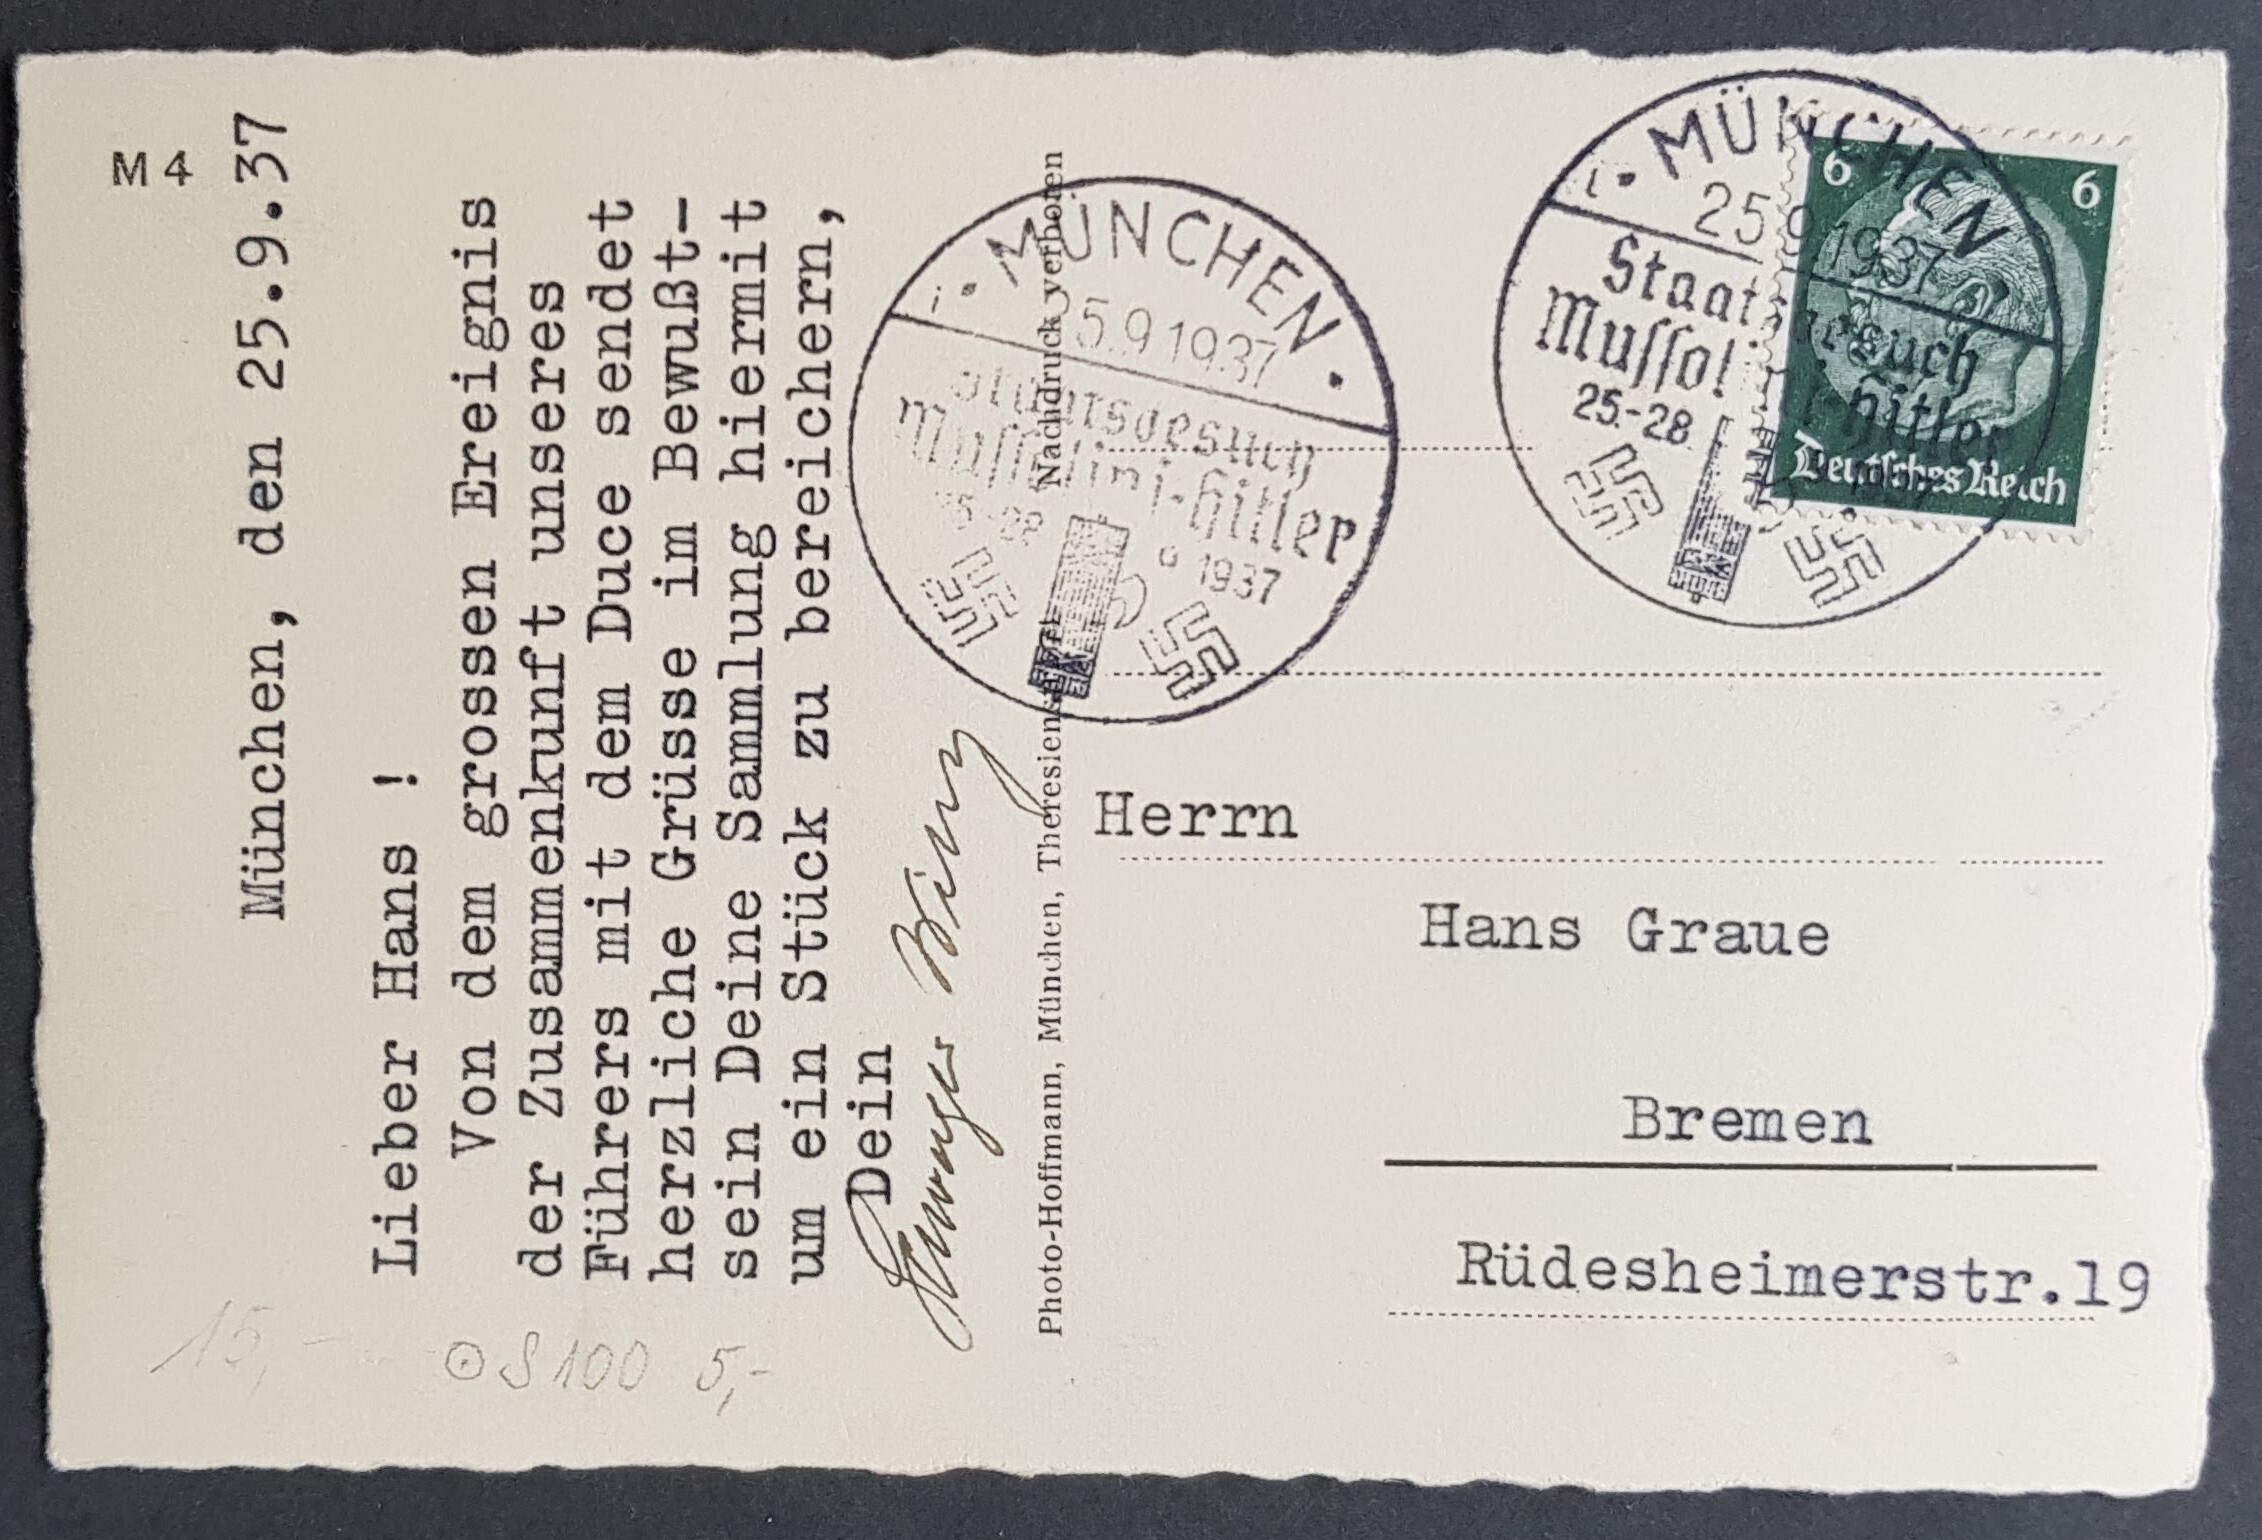 M 4
München, den 25.9.37
Lieber Hans !
Von dem grossen Ereignis
der Zusammenkunft unseres
Führers mit dem Duce sendet
herzliche Grüsse im Bewußt-
sein Deine Sammlung hiermit
um ein Stück zu bereichern,
Dein
15,-
S 100 5,-
Photo-Hoffmann, München, Nachdruck verboten
i • MÜNCHEN •
5.9 1937
Mussolini-Hitler
1937
i • MÜNCHEN
25.9.1937
Staatsbesuch
Mussolini-Hitler
25.-28.
6 6
Deutsches Reich
Herrn
Hans Graue
Bremen
Rüdesheimerstr.19